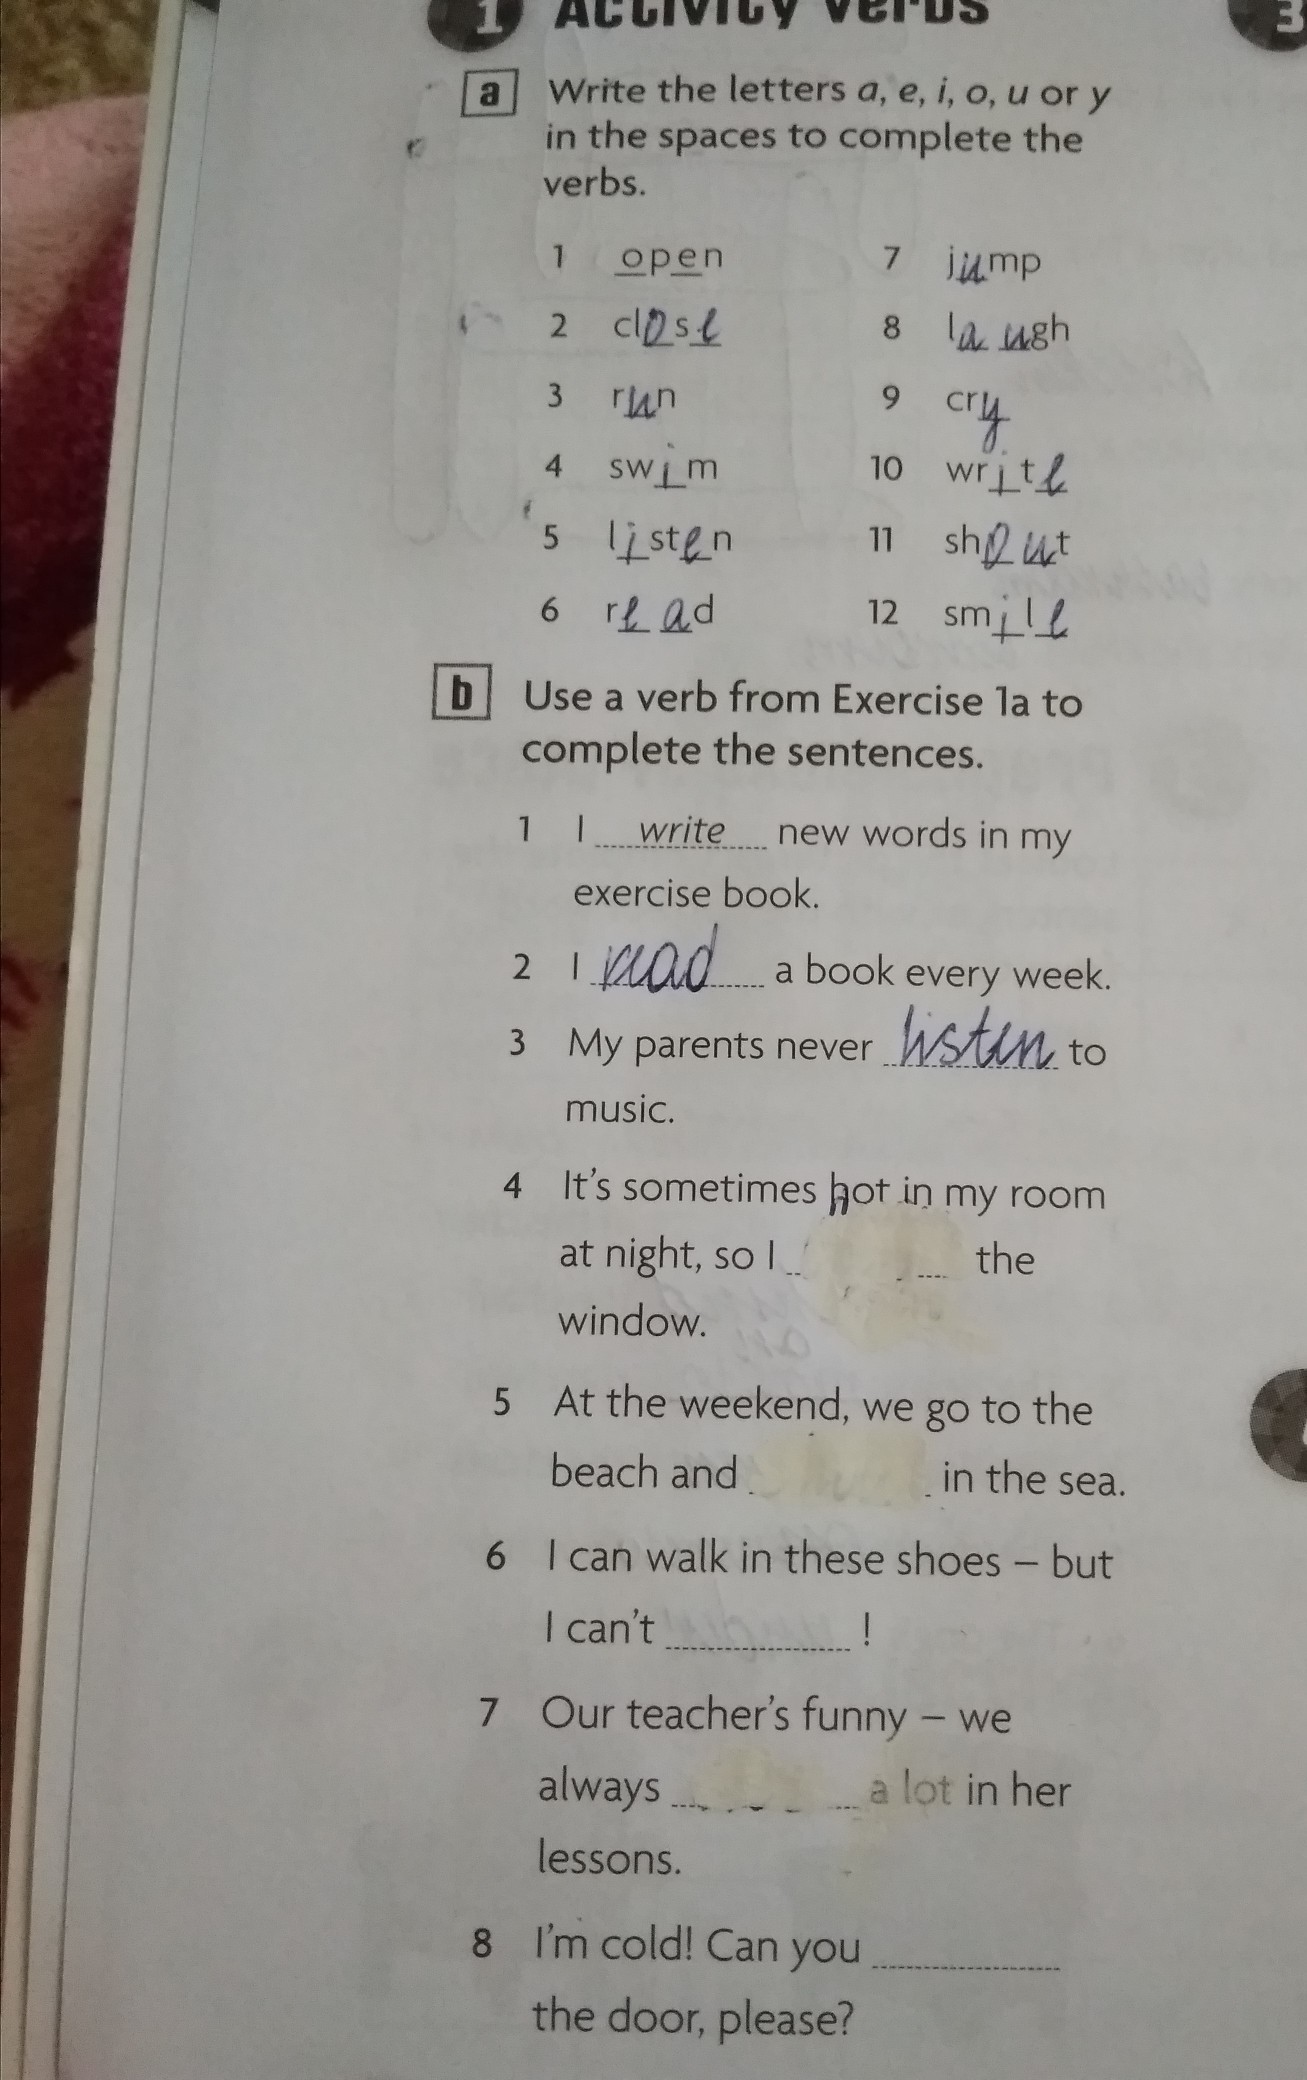 1 Activity verbs
3
a Write the letters a, e, i, o, u or y
in the spaces to complete the
verbs.
1 open 7 jump
2 close 8 laugh
3 run 9 cry
4 swim 10 write
5 listen 11 shout
6 read 12 smile
b Use a verb from Exercise 1a to
complete the sentences.
1 I write new words in my
exercise book.
2 I read a book every week.
3 My parents never listen to
music.
4 It's sometimes hot in my room
at night, so I the
window.
5 At the weekend, we go to the
beach and in the sea.
6 I can walk in these shoes – but
I can't !
7 Our teacher's funny – we
always a lot in her
lessons.
8 I'm cold! Can you
the door, please?